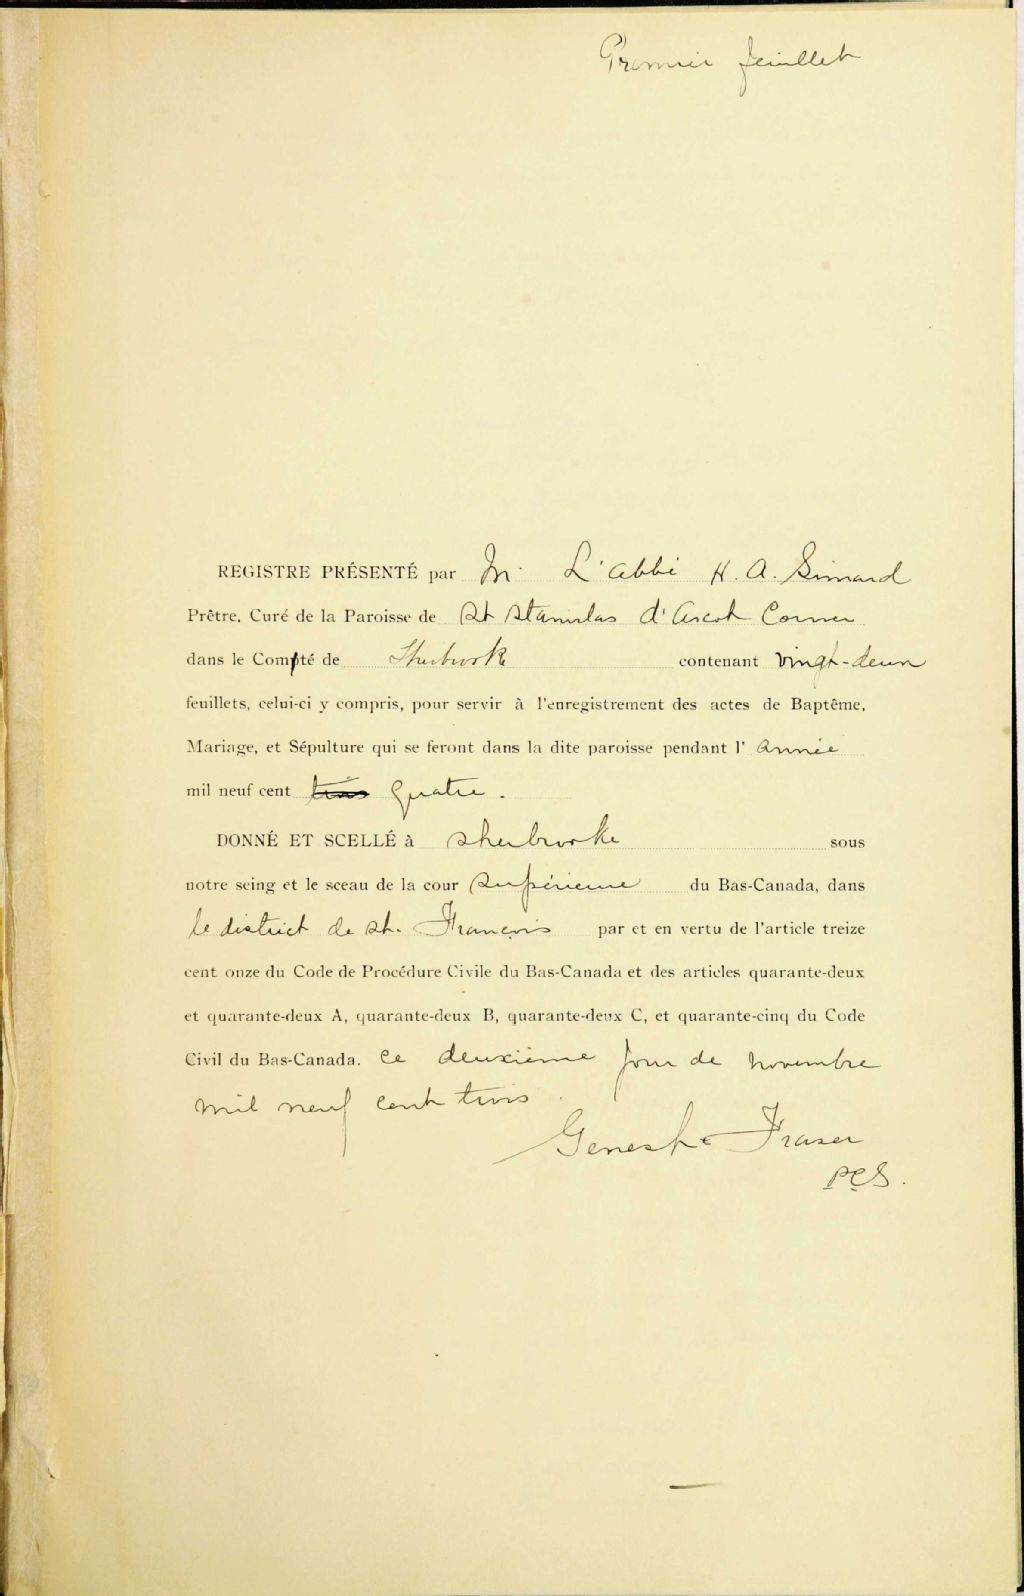 Premier feuillet
REGISTRE PRÉSENTÉ par M. L'abbé H. A. Simard
Prêtre, Curé de la Paroisse de St Stanislas d'Ascot Corner
dans le Compté de Sherbrooke contenant vingt-deux
feuillets, celui-ci y compris, pour servir à l'enregistrement des actes de Baptême,
Mariage, et Sépulture qui se feront dans la dite paroisse pendant l'année
mil neuf cent trois quatre.
DONNÉ ET SCELLÉ à Sherbrooke sous
notre seing et le sceau de la cour supérieure du Bas-Canada, dans
le district de St. François par et en vertu de l'article treize
cent onze du Code de Procédure Civile du Bas-Canada et des articles quarante-deux
et quarante-deux A, quarante-deux B, quarante-deux C, et quarante-cinq du Code
Civil du Bas-Canada. ce deuxième jour de novembre
mil neuf cent trois.
Genest & Fraser
PCS.